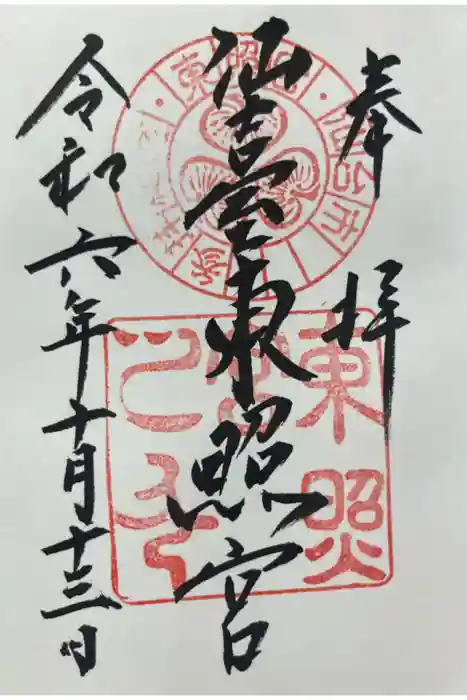 奉拝
仙臺東照宮
令和六年十月十三日
東照宮之璽